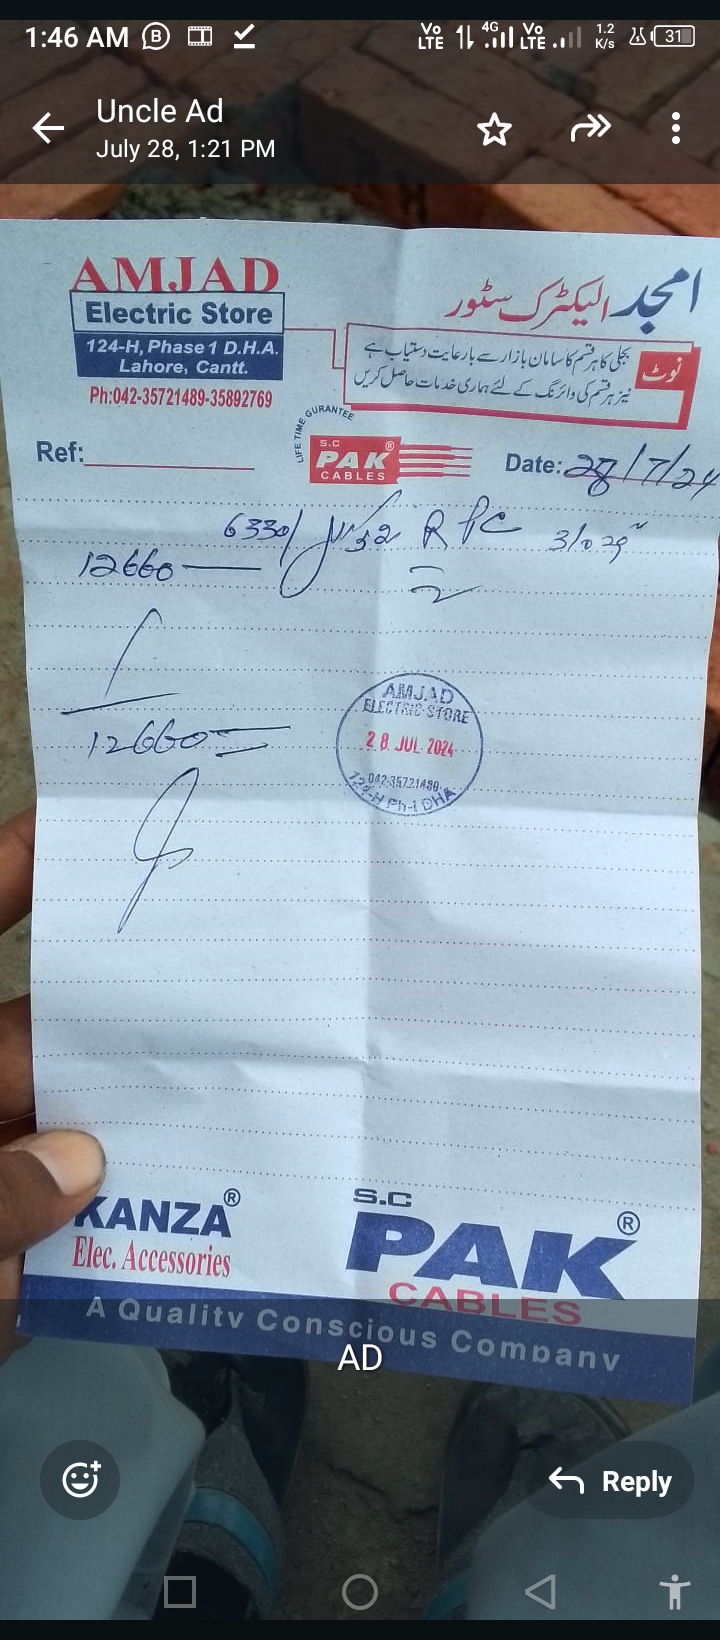 1:46 AM
Vo LTE 4G Vo LTE 1.2 K/s 31
Uncle Ad
July 28, 1:21 PM
AMJAD
Electric Store
124-H, Phase 1 D.H.A.
Lahore, Cantt.
Ph:042-35721489-35892769
امجد الیکٹرک سٹور
نوٹ
بجلی کا ہر قسم کا سامان بازار سے بارعایت دستیاب ہے
نیز ہر قسم کی وائرنگ کے لئے ہماری خدمات حاصل کریں
LIFE TIME GURANTEE
S.C
PAK ®
CABLES
Ref:
Date: 28/7/24
6330/ R PC 3/029"
12660
2
12660
AMJAD
ELECTRIC STORE
28 JUL 2024
042-35721489
124-H Ph-i DHA
KANZA ®
Elec. Accessories
S.C
PAK ®
CABLES
A Quality Conscious Company
AD
Reply